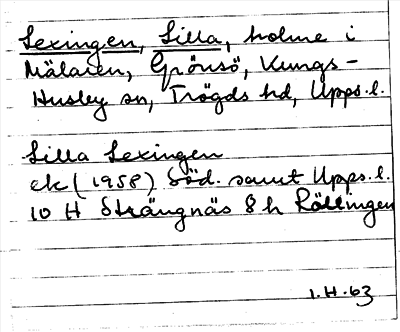 Lexingen, Lilla, holme i
Mälaren, Grönsö, Kungs-
Husby sn, Trögds hd, Upps.l.
Lilla Lexingen
ek (1958) Söd. samt Upps.l.
10 H Strängnäs 8 h Rällingen
1.H.63